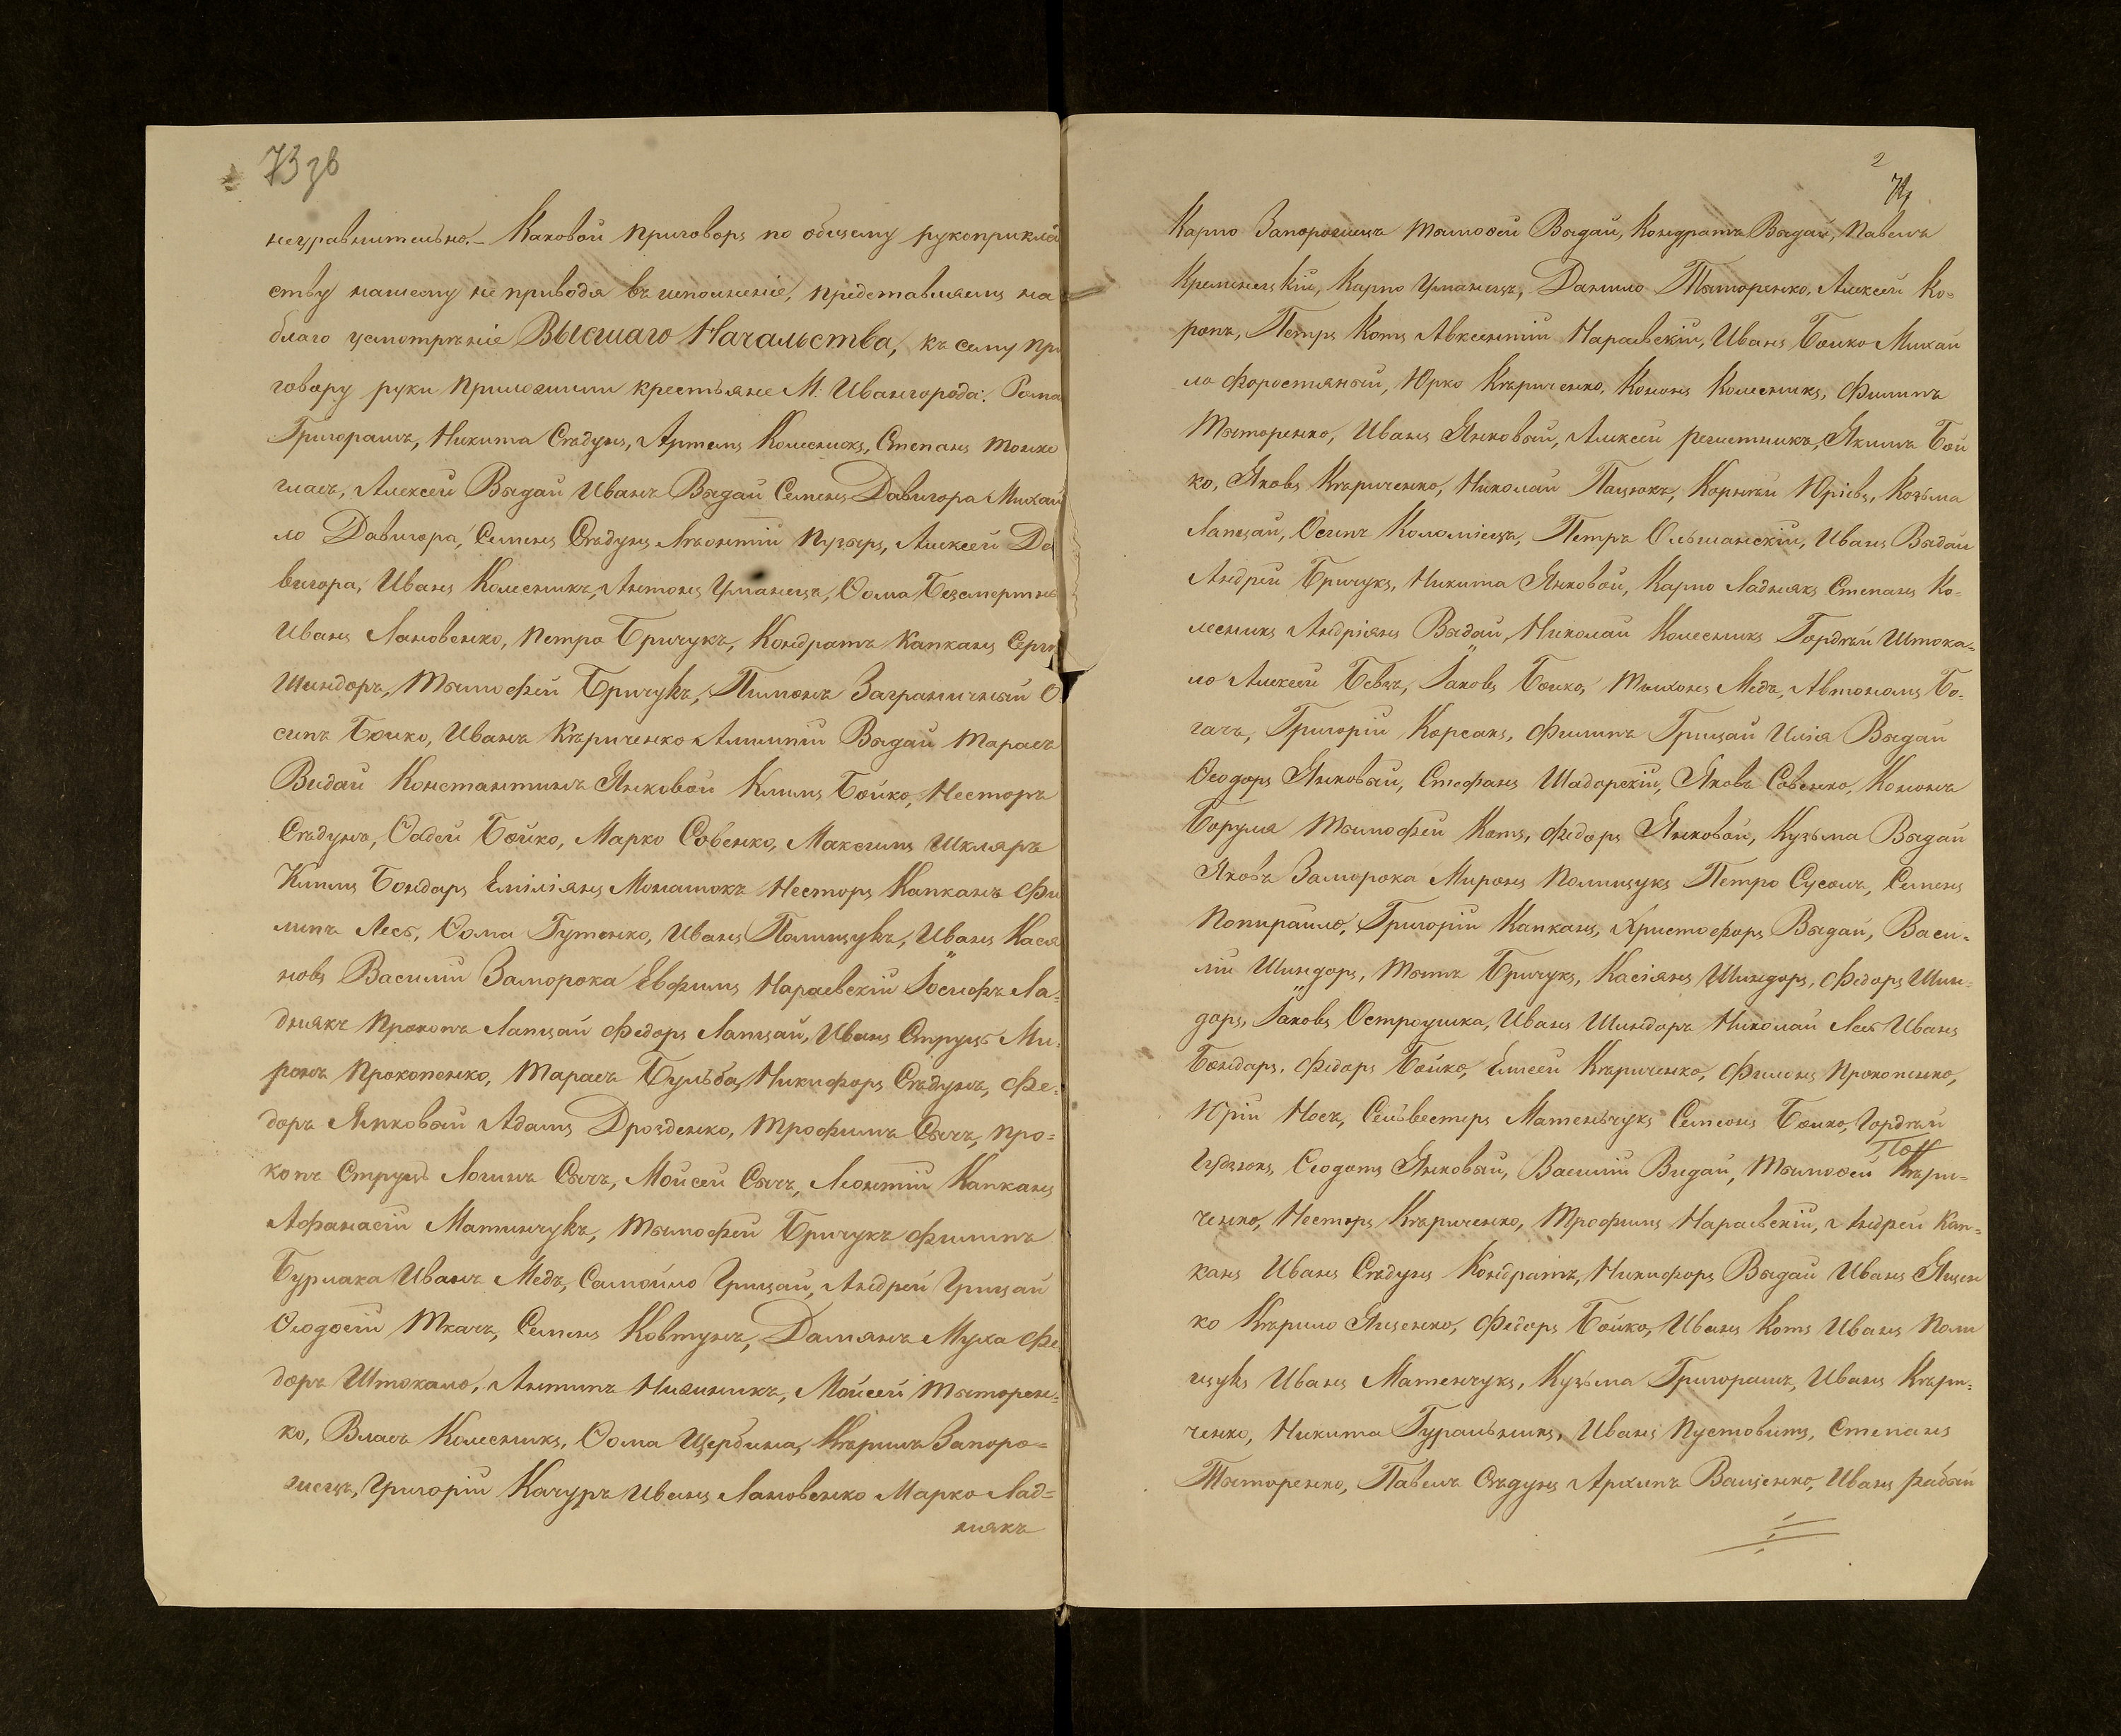 73 зв
неуравнительно. – Каковой приговоръ по общему рукоприкла
ству нашему не приводя въ исполненіе, представляемъ на
благо усмотрѣніе Высшаго Начальства, къ сему при
говору руки приложили крестьяне М: Ивангорода: Рома
Григорашъ, Никита Сѣдунъ, Артемъ Колесникъ, Степанъ Тонко
гласъ, Алексей Выдай Иванъ Выдай Семенъ Давигора Михай
ло Давигора, Семенъ Сѣдунъ Лѣонтій Пузырь, Алексей Да
вигора, Иванъ Колесникъ, Антонъ Уманецъ, Ѳома Безсмертны
Иванъ Лановенко, Петро Бричукъ, Кондратъ Капканъ Серги
Шиндоръ, Тымофей Бричукъ, Пимонъ Заграничный О
сипъ Бойко, Иванъ Кѣриченко Алимпій Выдай Тарасъ
Видай Константинъ Янковой Климъ Бойко, Несторъ
Сѣдунъ, Ѳадей Бойко, Марко Совенко, Максимъ Шкляръ
Климъ Бондарь Емілиянъ Монашокъ Несторъ Капканъ Фи
липъ Лесь, Ѳома Гутенко, Иванъ Полищукъ, Иванъ Касья
новъ Василій Заморока Евфимъ Нараевскій Іосифъ Ла-
днякъ Прокопъ Лапшай Федоръ Лапшай, Иванъ Струць Ми-
ронъ Прокопенко, Тарасъ Бульба, Никифоръ Сѣдунъ, Фе-
доръ Янковый Адамъ Дрозденко, Трофимъ Сычъ, Про-
копъ Струць Логинъ Сычъ, Мойсей Сычъ, Леонтій Капканъ
Афанасій Матинчукъ, Тымофей Бричукъ Филипъ
Бурлака Иванъ Медъ, Самойло Грицай, Андрей Грицай
Ѳеодосій Ткачъ, Семенъ Ковтунъ, Дамянъ Муха Фе
доръ Штокало, Антипъ Мойсей Тыторен-
ко, Власъ Колесникъ, Ѳома Щербина, Кѣрилъ Запоро-
жецъ, Григорій Качуръ Иванъ Лановенко Марко Лад-
някъ
2
74
Карпо Запорожецъ Тымоѳей Выдай, Кондратъ Выдай, Павелъ
Кременецкій, Карпо Уманецъ, Данило Тыторенко, Алексей Ко-
ропъ, Петръ Котъ Авксентій Нараевскій, Иванъ Бойко Михай
ло Форостяный, Юрко Кѣриченко, Кононъ Колесникъ, Филипъ
Тыторенко, Иванъ Янковый, Алексей Якимъ Бой
ко, Яковъ Кѣриченко, Николай Пацюкъ, Корнѣй Юрьевъ, Козьма
Лапшай, Осипъ Коломіецъ, Петръ Ольшанскій, Иванъ Выдай
Андрей Бричукъ, Никита Янковой, Карпо Ладнякъ Степанъ Ко-
лесникъ Андріянъ Выдай, Николай Колесникъ Гордѣй Штока-
ло Алексей Бевзъ, Іаковъ Бойко, Тыхонъ Медъ, Автономъ Бо-
гачъ, Григорій Корсакъ, Филипъ Грицай Илія Выдай
Ѳеодоръ Янковый, Стефанъ Шадорскій, Яковъ Совенко, Кононъ
Боруля Тымофей Котъ, Федоръ Янковой, Кузьма Выдай
Яковъ Заморока Миронъ Полищукъ Петро Сусолъ, Семенъ
Попирайло, Григорій Капканъ, Христофоръ Выдай, Васи-
лій Шиндоръ, Тытъ Бричукъ, Касіянъ Шиндоръ, Федоръ Шин-
доръ, Іаковъ Остроушка, Иванъ Шиндоръ Николай Лесь Иванъ
Бондарь, Федоръ Бойко, Елисей Кѣриченко, Филонъ Прокопенко,
Юрій Носъ, Сельвестеръ Матеньчукъ Семионъ Бойко, Гордѣй
Ѳеодотъ Янковый, Василій Видай, Тымоѳей Кѣри-
ченко, Несторъ Кѣриченко, Трофимъ Нараевскій, Андрей Кап-
канъ Иванъ Сѣдунъ Кондратъ, Никифоръ Выдай Иванъ Ящен
ко Кѣрило Ященко, Федоръ Бойко, Иванъ Котъ Иванъ Поли
щукъ Иванъ Матенчукъ, Кузьма Григорашъ, Иванъ Кѣри-
ченко, Никита Гуральникъ, Иванъ Пустовитъ, Степанъ
Тыторенко, Павелъ Сѣдунъ Архипъ Ващенко, Иванъ Рабый